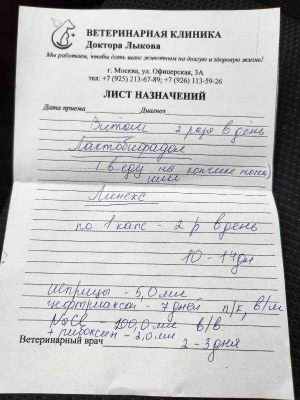 ВЕТЕРИНАРНАЯ КЛИНИКА
Доктора Лыкова
Мы работаем, чтобы дать шанс животным на долгую и здоровую жизнь!
г. Москва, ул. Офицерская, 3А
тел: +7 (925) 213-67-89; +7 (926) 113-59-26
ЛИСТ НАЗНАЧЕНИЙ
Дата приема Диагноз
2 раза в день
Лактобифадол
(в еду на кончике ножа)
или
Линекс
по 1 капс - 2 р в день
10 - 14 дн
Шприцы - 5,0 мл
Цефтриаксон - 7 дней п/к, в/м
NaCl 100,0 мл в/в
+ - 2,0 мл
2 - 3 дня
Ветеринарный врач